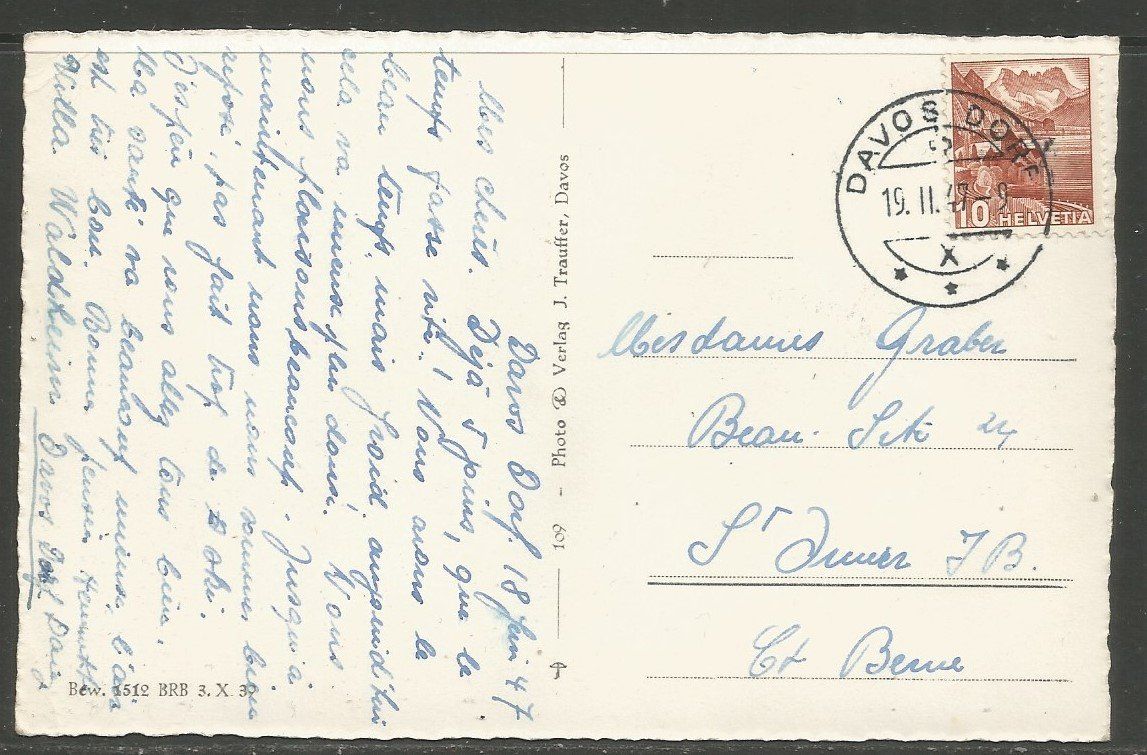 Davos Dorf. 18 Janv 47
Mes chers. Déjà 5 jours, que le
temps passe vite! Nous avons le
beau temps mais froid, aujourd'hui
cela va mieux plus doux. Nous
nous plaisons beaucoup. Jusqu'à
maintenant nous nous sommes bien
reposé, pas fait trop de ski.
J'espère que vous allez tous bien.
Ma santé va beaucoup mieux, l'air
est très bon. Bonne pensée
Villa Waldheim Davos Dorf Daisy
Bew. 1512 BRB 3. X. 39
109 - Photo & Verlag J. Trauffer, Davos
DAVOS DORF
19. II. 47-9
X
10 HELVETIA
Mesdames Graber
Beau-Site 24
St Imier J B.
Ct Berne